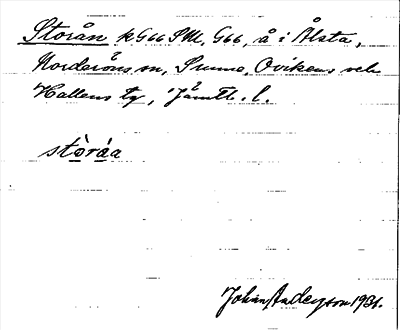 Storån k G66 SV, G66, å i Ålsta,
Norderöns sn, Sunne, Ovikens och
Hallens tg, Jämtl. l.
stòráa
Johan Anderson 1931.